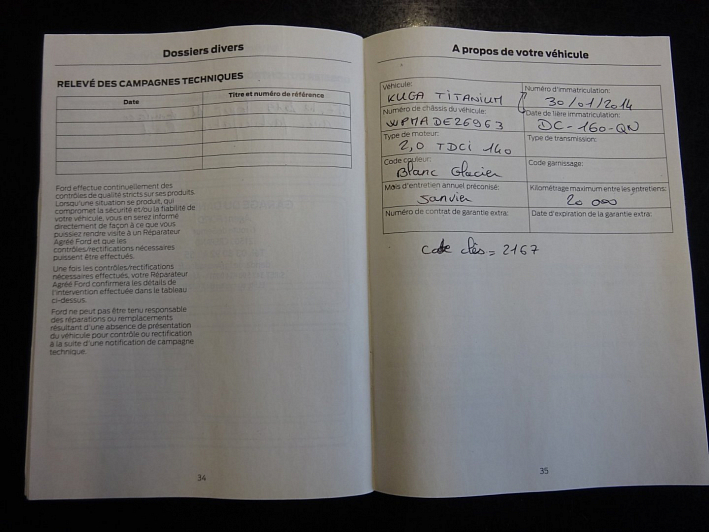 Dossiers divers
RELEVÉ DES CAMPAGNES TECHNIQUES
Date
Titre et numéro de référence
Ford effectue continuellement des
contrôles de qualité stricts sur ses produits.
Lorsqu'une situation se produit, qui
compromet la sécurité et/ou la fiabilité de
votre véhicule, vous en serez informé
directement de façon à ce que vous
puissiez rendre visite à un Réparateur
Agréé Ford et que les
contrôles/rectifications nécessaires
puissent être effectués.
Une fois les contrôles/rectifications
nécessaires effectués, votre Réparateur
Agréé Ford confirmera les détails de
l'intervention effectuée dans le tableau
ci-dessus.
Ford ne peut pas être tenu responsable
des réparations ou remplacements
résultant d'une absence de présentation
du véhicule pour contrôle ou rectification
à la suite d'une notification de campagne
technique.
34
A propos de votre véhicule
Véhicule:
KUGA TITANIUM
Numéro d'immatriculation:
30/01/2014
Numéro de châssis du véhicule:
WPMADE26963
Date de 1ière immatriculation:
DC-160-QN
Type de moteur:
2,0 TDCi 140
Type de transmission:
Code couleur:
Blanc Glacier
Code garnissage:
Mois d'entretien annuel préconisé:
Janvier
Kilométrage maximum entre les entretiens:
20 000
Numéro de contrat de garantie extra:
Date d'expiration de la garantie extra:
Code clés = 2167
35